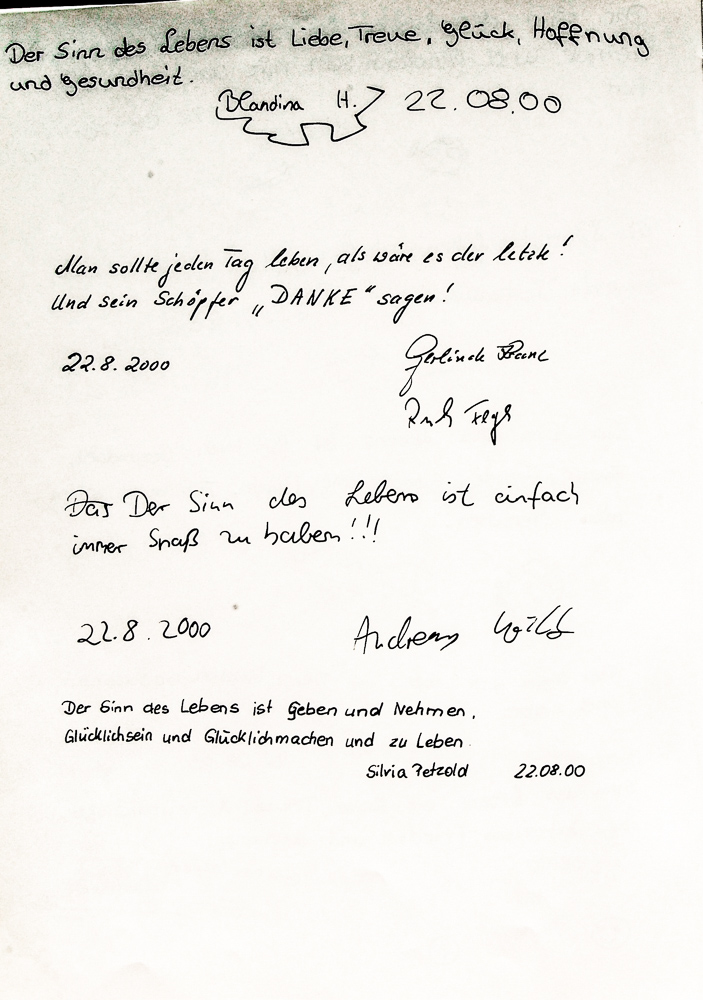 Der Sinn des Lebens ist Liebe, Treue, Glück, Hoffnung
und Gesundheit.
Blandina H. 22.08.00
Man sollte jeden Tag leben, als wäre es der letzte!
Und sein Schöpfer „DANKE“ sagen!
22.8.2000
Das Der Sinn des Lebens ist einfach
immer Spaß zu haben!!!
22.8.2000 Andreas
Der Sinn des Lebens ist Geben und Nehmen,
Glücklichsein und Glücklichmachen und zu Leben.
Silvia Petzold 22.08.00